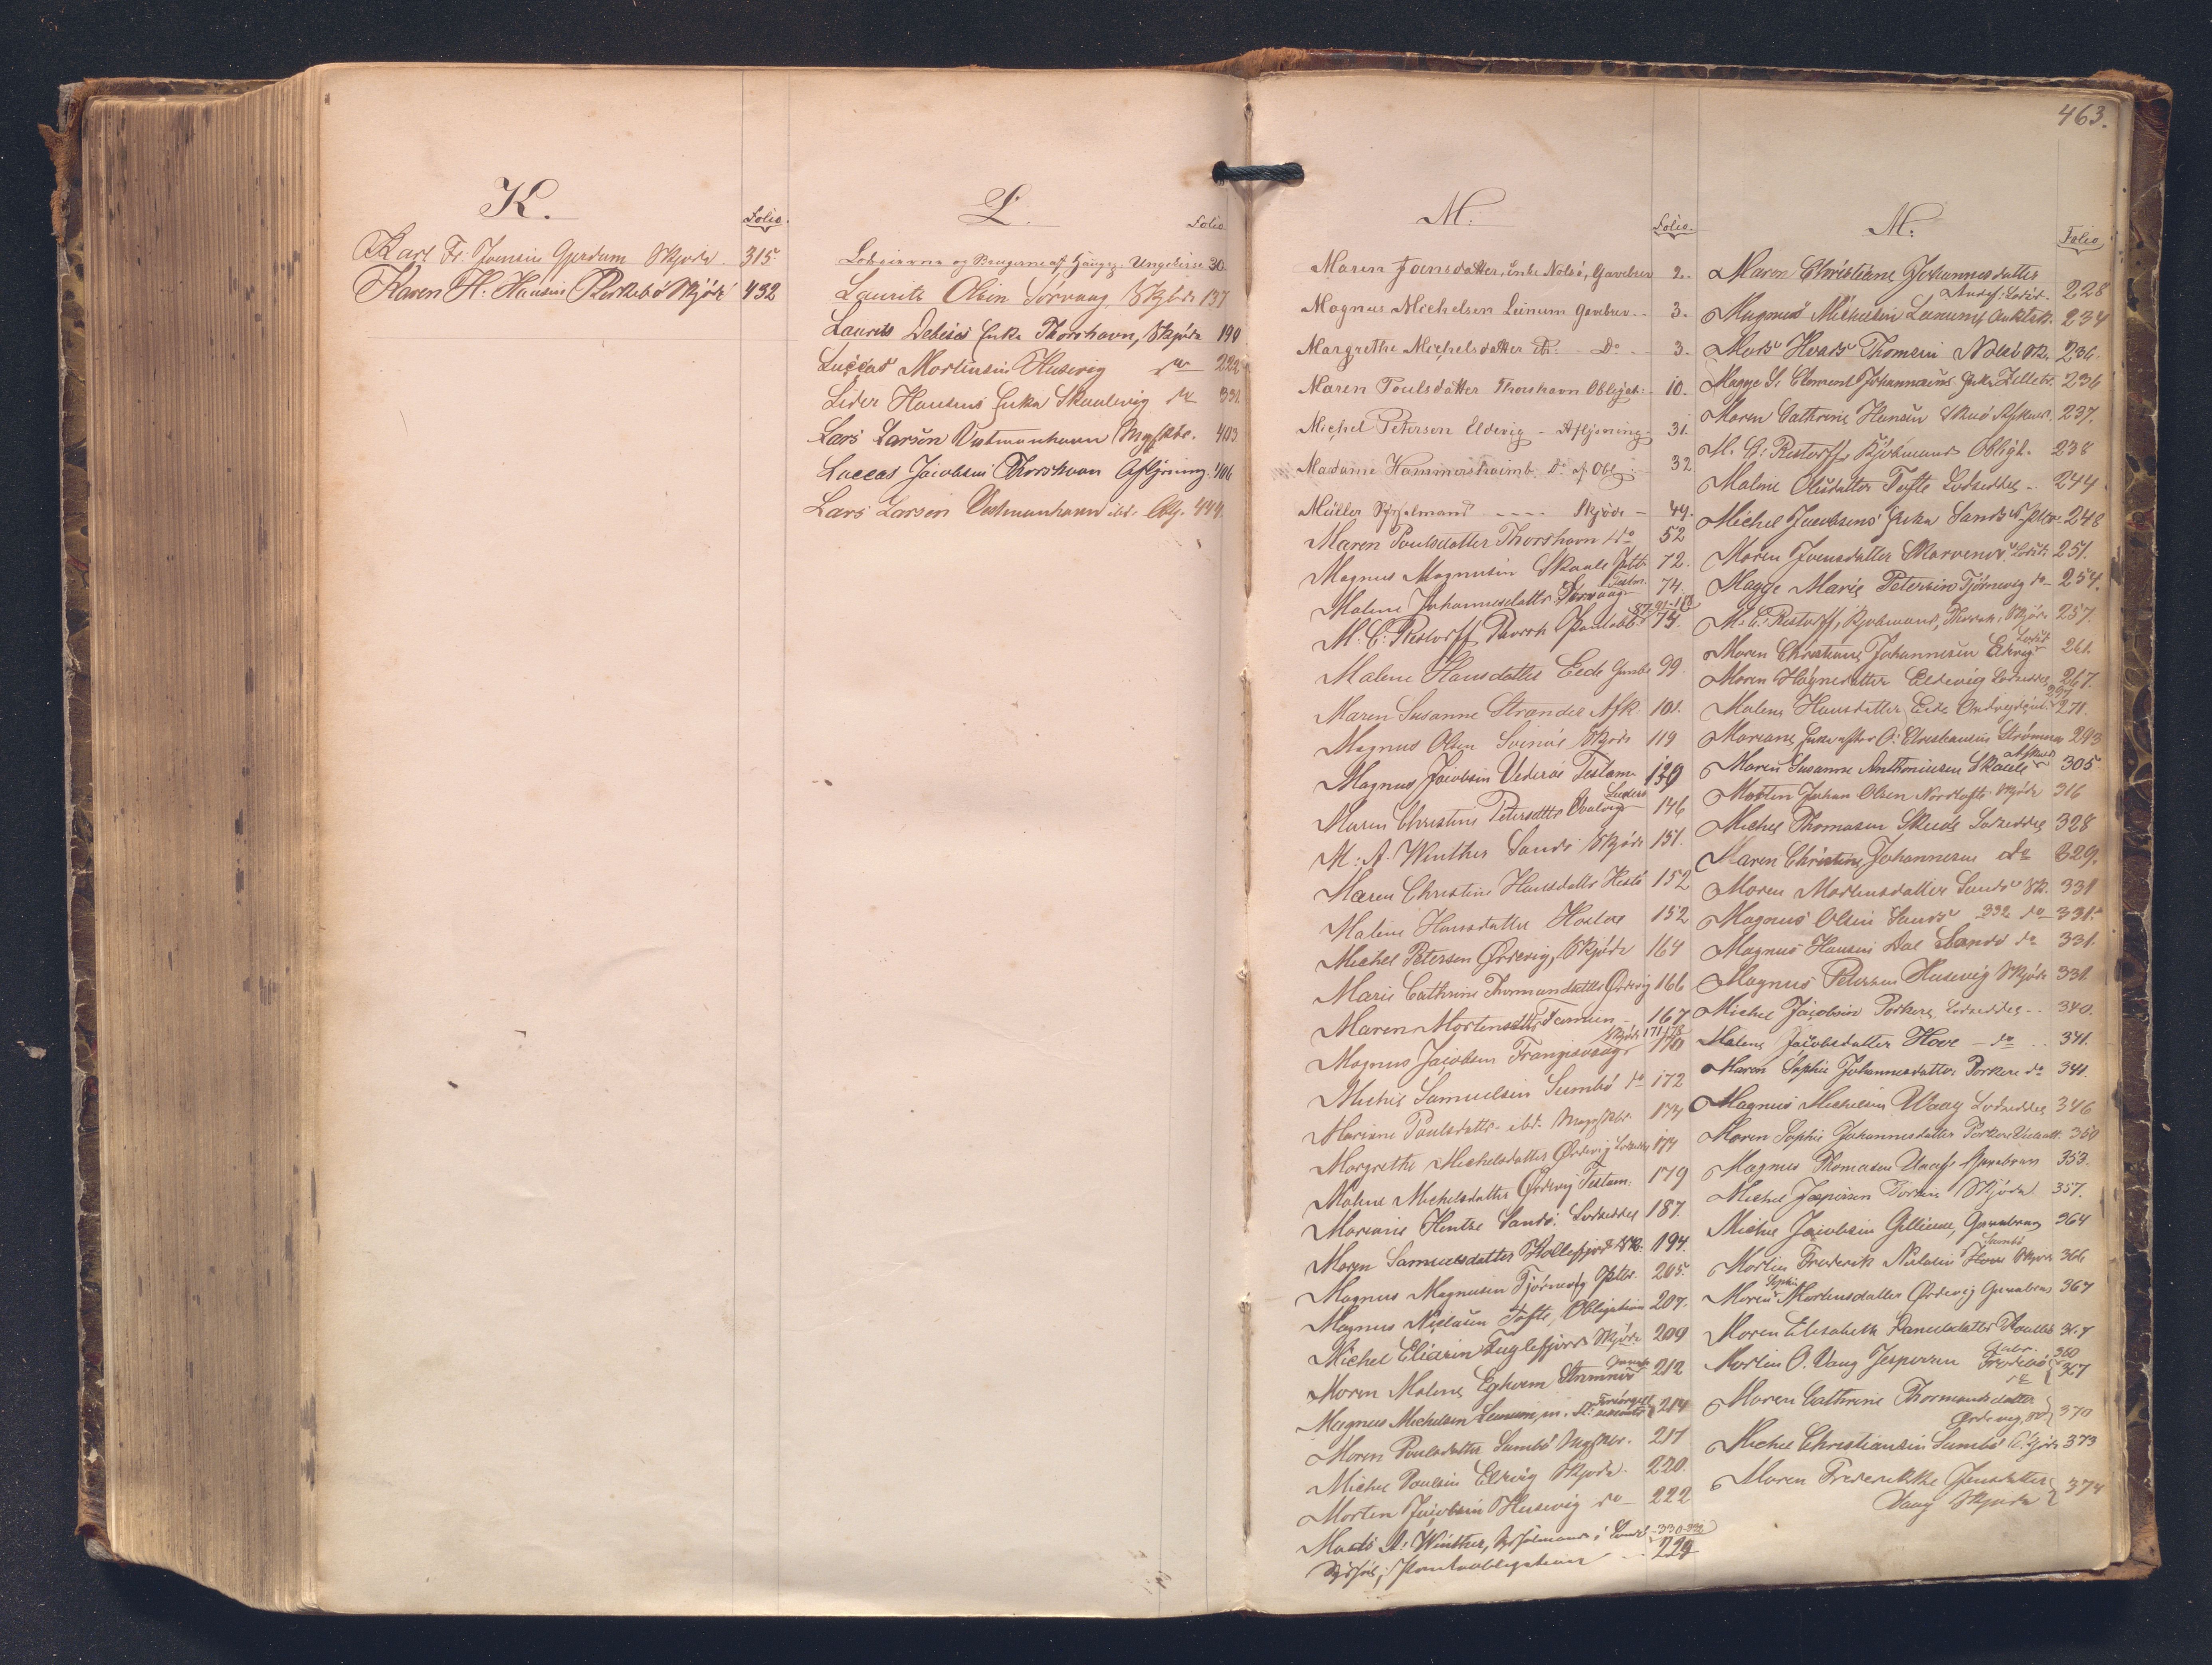 K.
Folio.
Karl Fr. Joensen Gjerdum Skjöde 315.
Karen H. Hansen Kirkebö Skjöde 432
L.
Folio
og Brugerne af 30
Laurits Olsen Sörvaag Skjöde 137
Laurits Debesis Enke Thorshavn, Skjöde 190
Luccas Mortensen Husevig do 222
Hansens Enke Skaalevig do 331.
Lars Larsen Vestmanhavn Mgfkbr. 403
Luccas Jacobsen Thorshavn Aflysning. 406
Lars Larsen Vestmanhavn ibd. Obl. 444
M:
Folio.
Maren Joensdatter, Enke Nolsö, Gavebrev 2.
Magnus Michelsen Leinum Gavebrev 3.
Margrethe Michelsdatter Do 3.
Maren Poulsdatter Thorshavn Obligat: 10.
Michel Petersen Eldevig - Aflysning 31.
Madame Hammershaimb Do af Obl: 32
Müller Sysselmand - - - - Skjöde - 49.
Maren Poulsdatter Thorshavn do 52
Magnus Magnusen Skaale 72.
Malene Johannesdatter Sörvaag Testm. 74.
M. C. Restorff Thorsh Pantobl. 75.
Malene Hansdatter Eide 99
Maren Susanne Strande Afk. 101.
Magnus Olsen Svinöe Skjöde 119
Magnus Jacobsen Viderøe Testam. 130
Maren Christine Petersdatter Qvalvig 146
M: A. Winther Sandö Skjöde 151.
Maren Christine Hansdatter Hestö 152
Malene Hansdatter 152
Michel Petersen Ördevig, Skjöde 164
Marie Cathrine Thormandsdatter Ördevig 166
Maren Mortensdatter Famien 167
Magnus Jacobsen Frangisvaag Skjöde 171,178 170
Michel Samuelsen Sumbö do 172
Mariane Poulsdatter ibd. Mageskbr. 173
Margrethe Michelsdatter Ördevig Lodseddel 174
Malene Michelsdatter Ördevig Testam. 179
Mariane Hentze Sandö. Lodseddel 187.
Maren Samuelsdatter Kollefjord Sk. 194.
Magnus Magnusen Tjörnevig 205
Magnus Niclasen Tofte, Obligation 207.
Michel Eliasen Fuglefjord Skjöde 209
Maren Malene Egholm Strömnæs 212
Magnus Michelsen Leinum, m. fl. 214
Maren Poulsdatter Sumbö Mgfkbr. 217
Michel Poulsen Eldevig Skjöde. 220.
Morten Jacobsen Husevig do 222
Mads A: Winther, Sysselmand i Sandö 330-332
Pantobligation 229
463.
M:
Folio
Maren Christiane Johannesdatter
Andef: Lodsd. 228
Magnus Michelsen Leinum, Auktsk. 234
Mads Hvass Thomsen Nolsö Sk. 236.
Magge S. Clement Johannesens Enke 236
Maren Cathrine Hansen Skuö Afkald. 237.
M. C: Restorff, Kjöbmand Obligt. 238
Malene Olesdatter Tofte Lodseddel 244
Michel Jacobsens Enke Sands 248
Maren Joensdatter Skarvenæs Lodsd. 251.
Magge Marie Petersen Tjörnevig do 254.
M. C. Restorff, Kjöbmand, Thorsh. Skjöde 257.
Maren Christiane Johannesen Lodsd. 261.
Maren Högnesdatter Eldevig Lodseddel 267.
Malene Hansdatter Eide 297 271.
Mariane, Enke efter O: Christiansen Strömnæs 293
Maren Susanne Anthoniusen Skaale Afkald 305
Morten Johan Olsen Nordtofte Skjöde 316
Michel Thomasen Skuöe Lodseddel 328
Maren Christine Johannesen do 329.
Maren Mortensdatter Sandö Sk. 331
Magnus Olsen Sandö 332 do 331.
Magnus Hansen Dal Sandö do 331.
Magnus Petersen Husevig Skjöde 331.
Michel Jacobsen Porkere Lodseddel 340.
Malene Jacobsdatter Hove - do 341.
Maren Sophie Johannesdatter Porkere do 341.
Magnus Michelsen Waag Lodseddel 346
Maren Sophie Johannesdatter Porkere 350
Magnus Thomasen Gavebrev 353.
Michel Jespersen Skjöde 357.
Michel Jacobsen Gavebrev 364
Morten Frederik Niclasen Hove Sumbö Skjöde 366
Maren Sophie Mortensdatter Ördevig Gavebrev 367
Maren Elisabeth 367
Morten O. Vang Jespersen Froderbö 360 367
Maren Cathrine Thormandsdatter
Ördevig, do 370
Michel Christiansen Sumbö Skjöde 373
Maren Frederikke Joensdatter
Vaag Skjöde 374